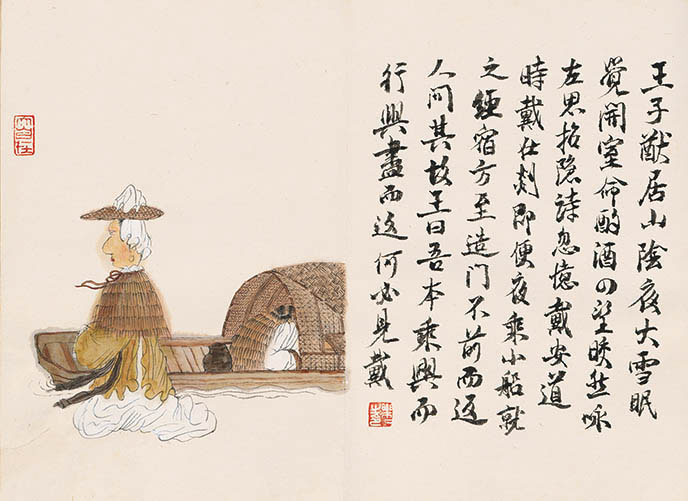 王子猷居山陰夜大雪眠
覺開室命酌酒四望皎然咏
左思招隐詩忽憶戴安道
時戴在剡即便夜乘小船就
之經宿方至造門不前而返
人問其故王曰吾本乘興而
行興盡而返何必見戴